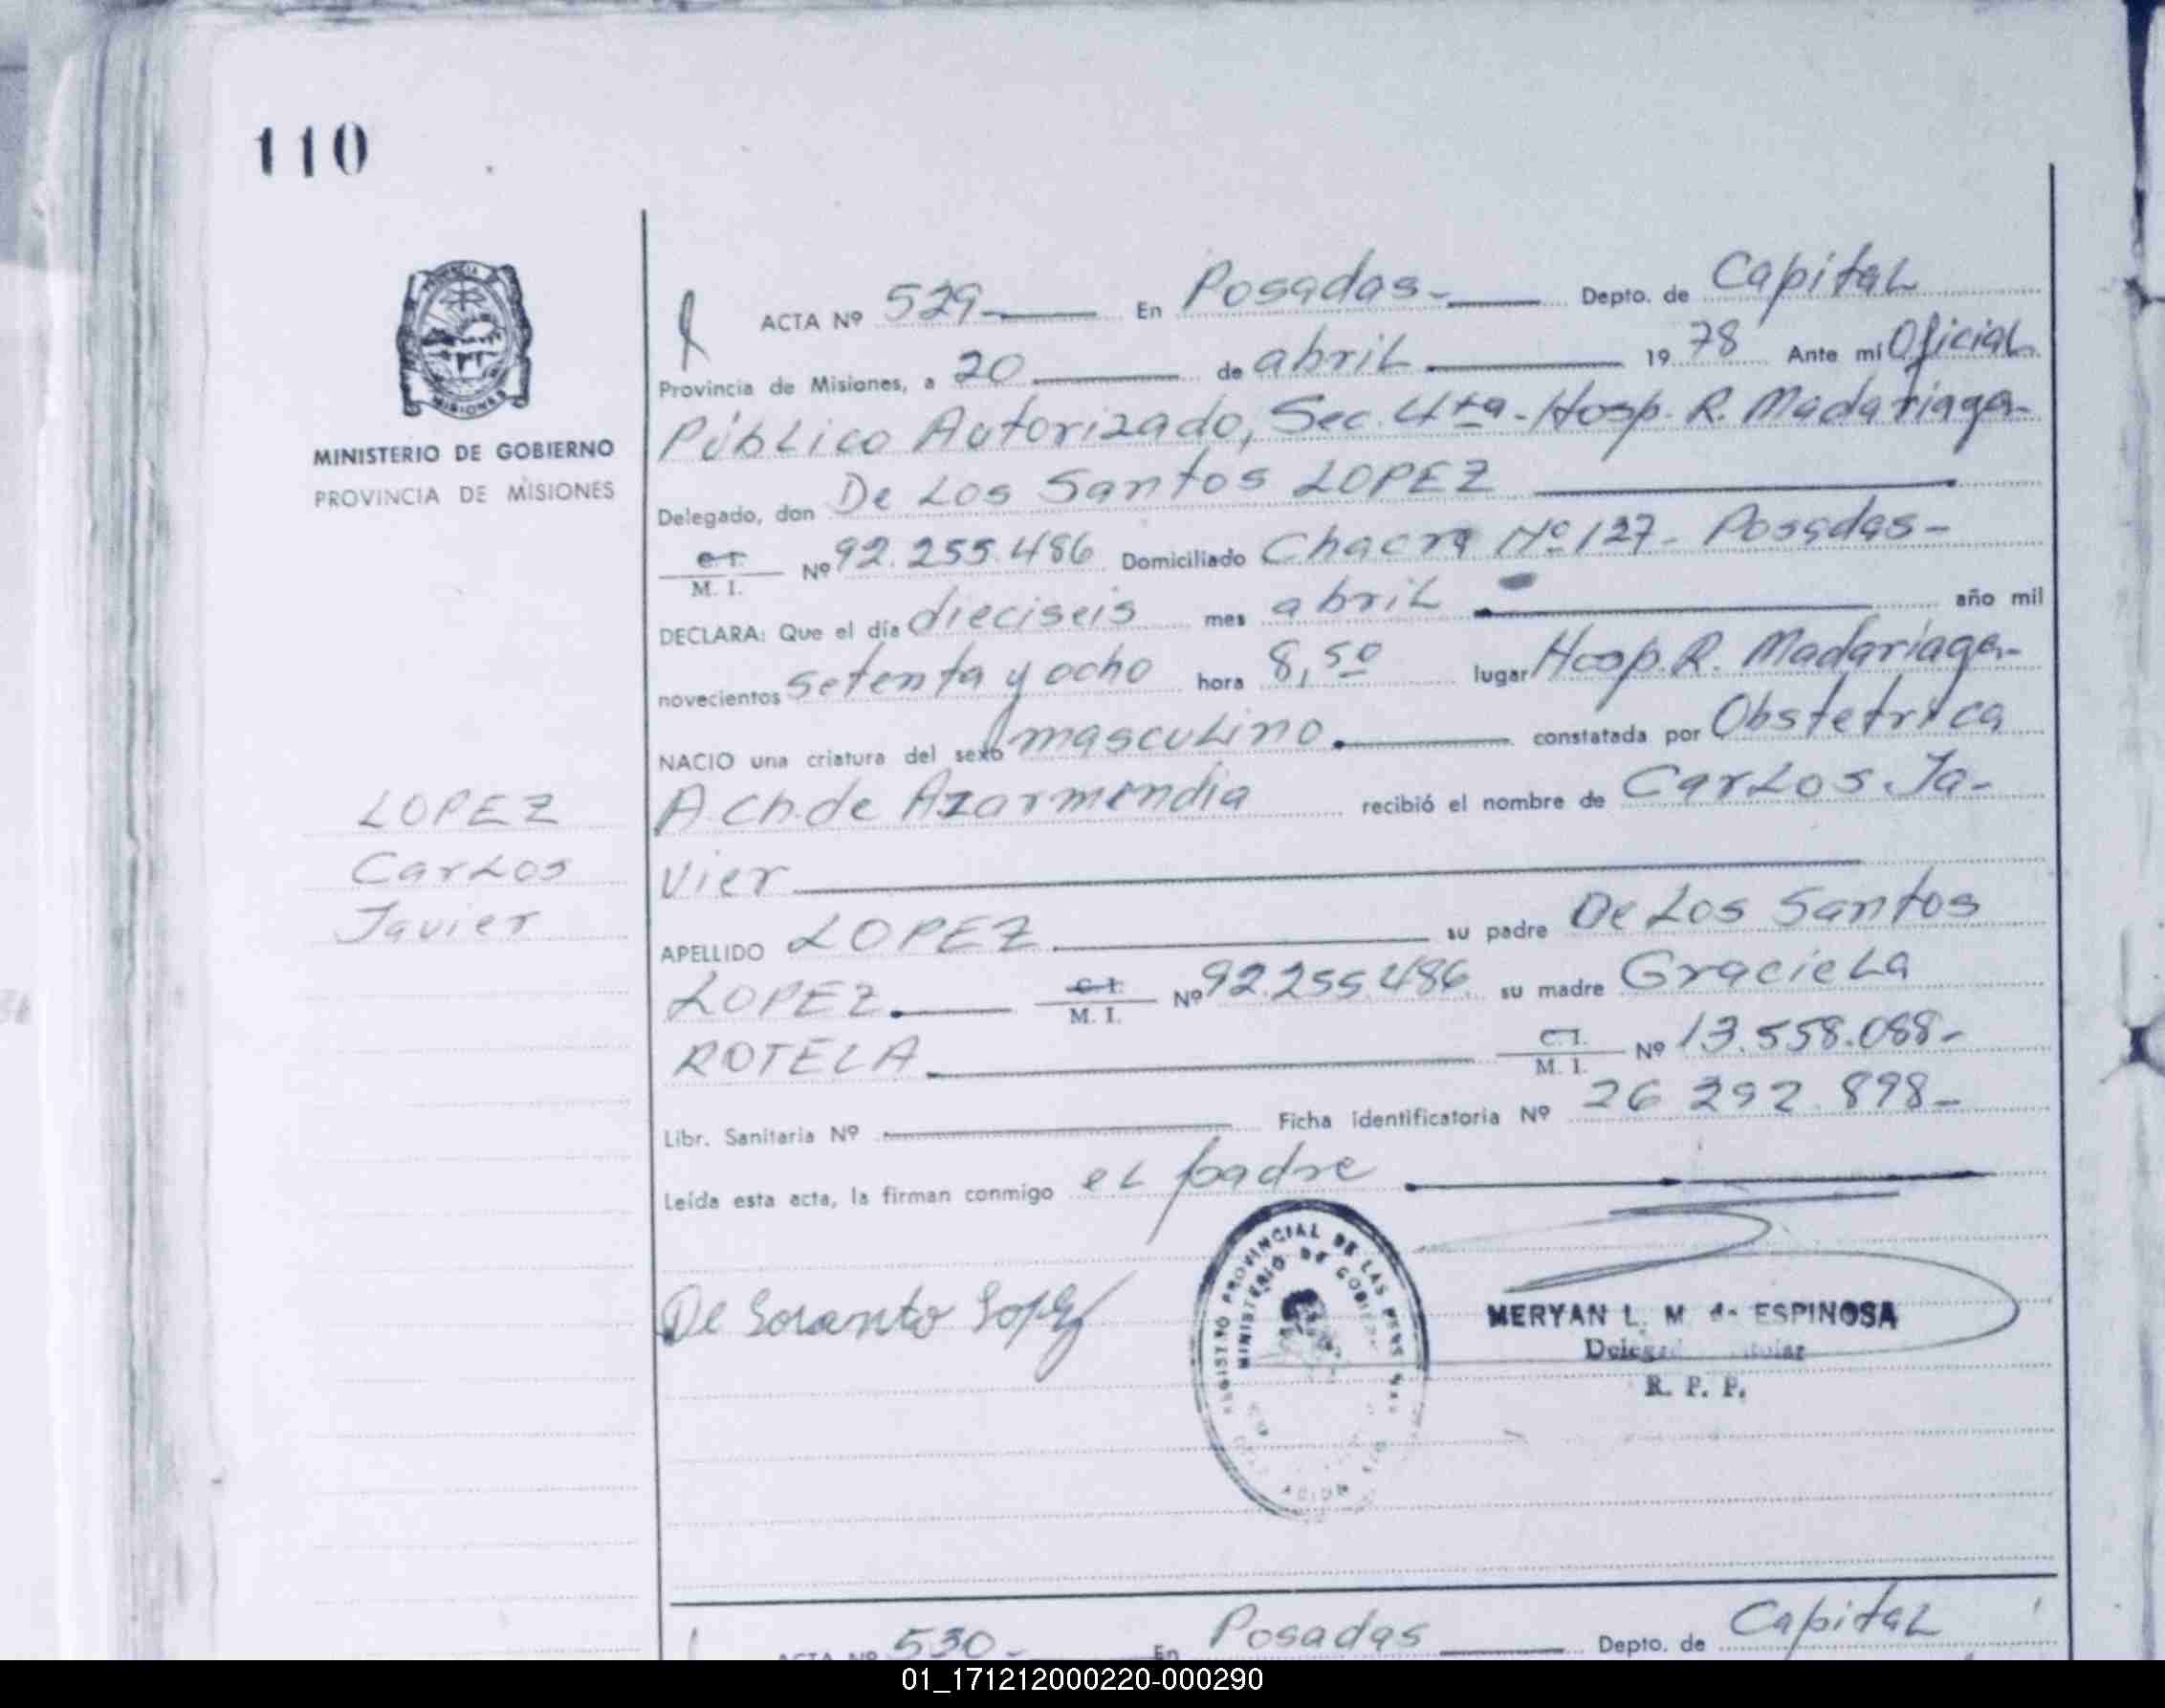 110
MINISTERIO DE GOBIERNO
PROVINCIA DE MISIONES
LOPEZ
Carlos
Javier
ACTA Nº 529 En Posadas- Depto. de Capital
Provincia de Misiones, a 20 de abril 1978 Ante mí Oficial
Público Autorizado, Sec. 4ta-Hosp. R. Madariaga-
Delegado, don De Los Santos LOPEZ
C. I. M. I. Nº 92.255.486 Domiciliado Chacra Nº 127- Posadas-
DECLARA: Que el día dieciseis mes abril año mil
novecientos setenta y ocho hora 8,50 lugar Hosp. R. Madariaga-
NACIO una criatura del sexo masculino. constatada por Obstetrica
A. Ch. de Azarmendia recibió el nombre de Carlos Ja-
vier
APELLIDO LOPEZ su padre De Los Santos
LOPEZ. C. I. M. I. Nº 92.255.486. su madre Graciela
ROTELA C. I. M. I. Nº 13.558.088-
Libr. Sanitaria Nº Ficha identificatoria Nº 26 292.898-
Leída esta acta, la firman conmigo el padre
REGISTRO PROVINCIAL DE LAS PERS
MINISTERIO DE GOBIERNO
MERYAN L. M. de ESPINOSA
R. P. P.
ACTA Nº 530- En Posadas Depto. de Capital
01_171212000220-000290